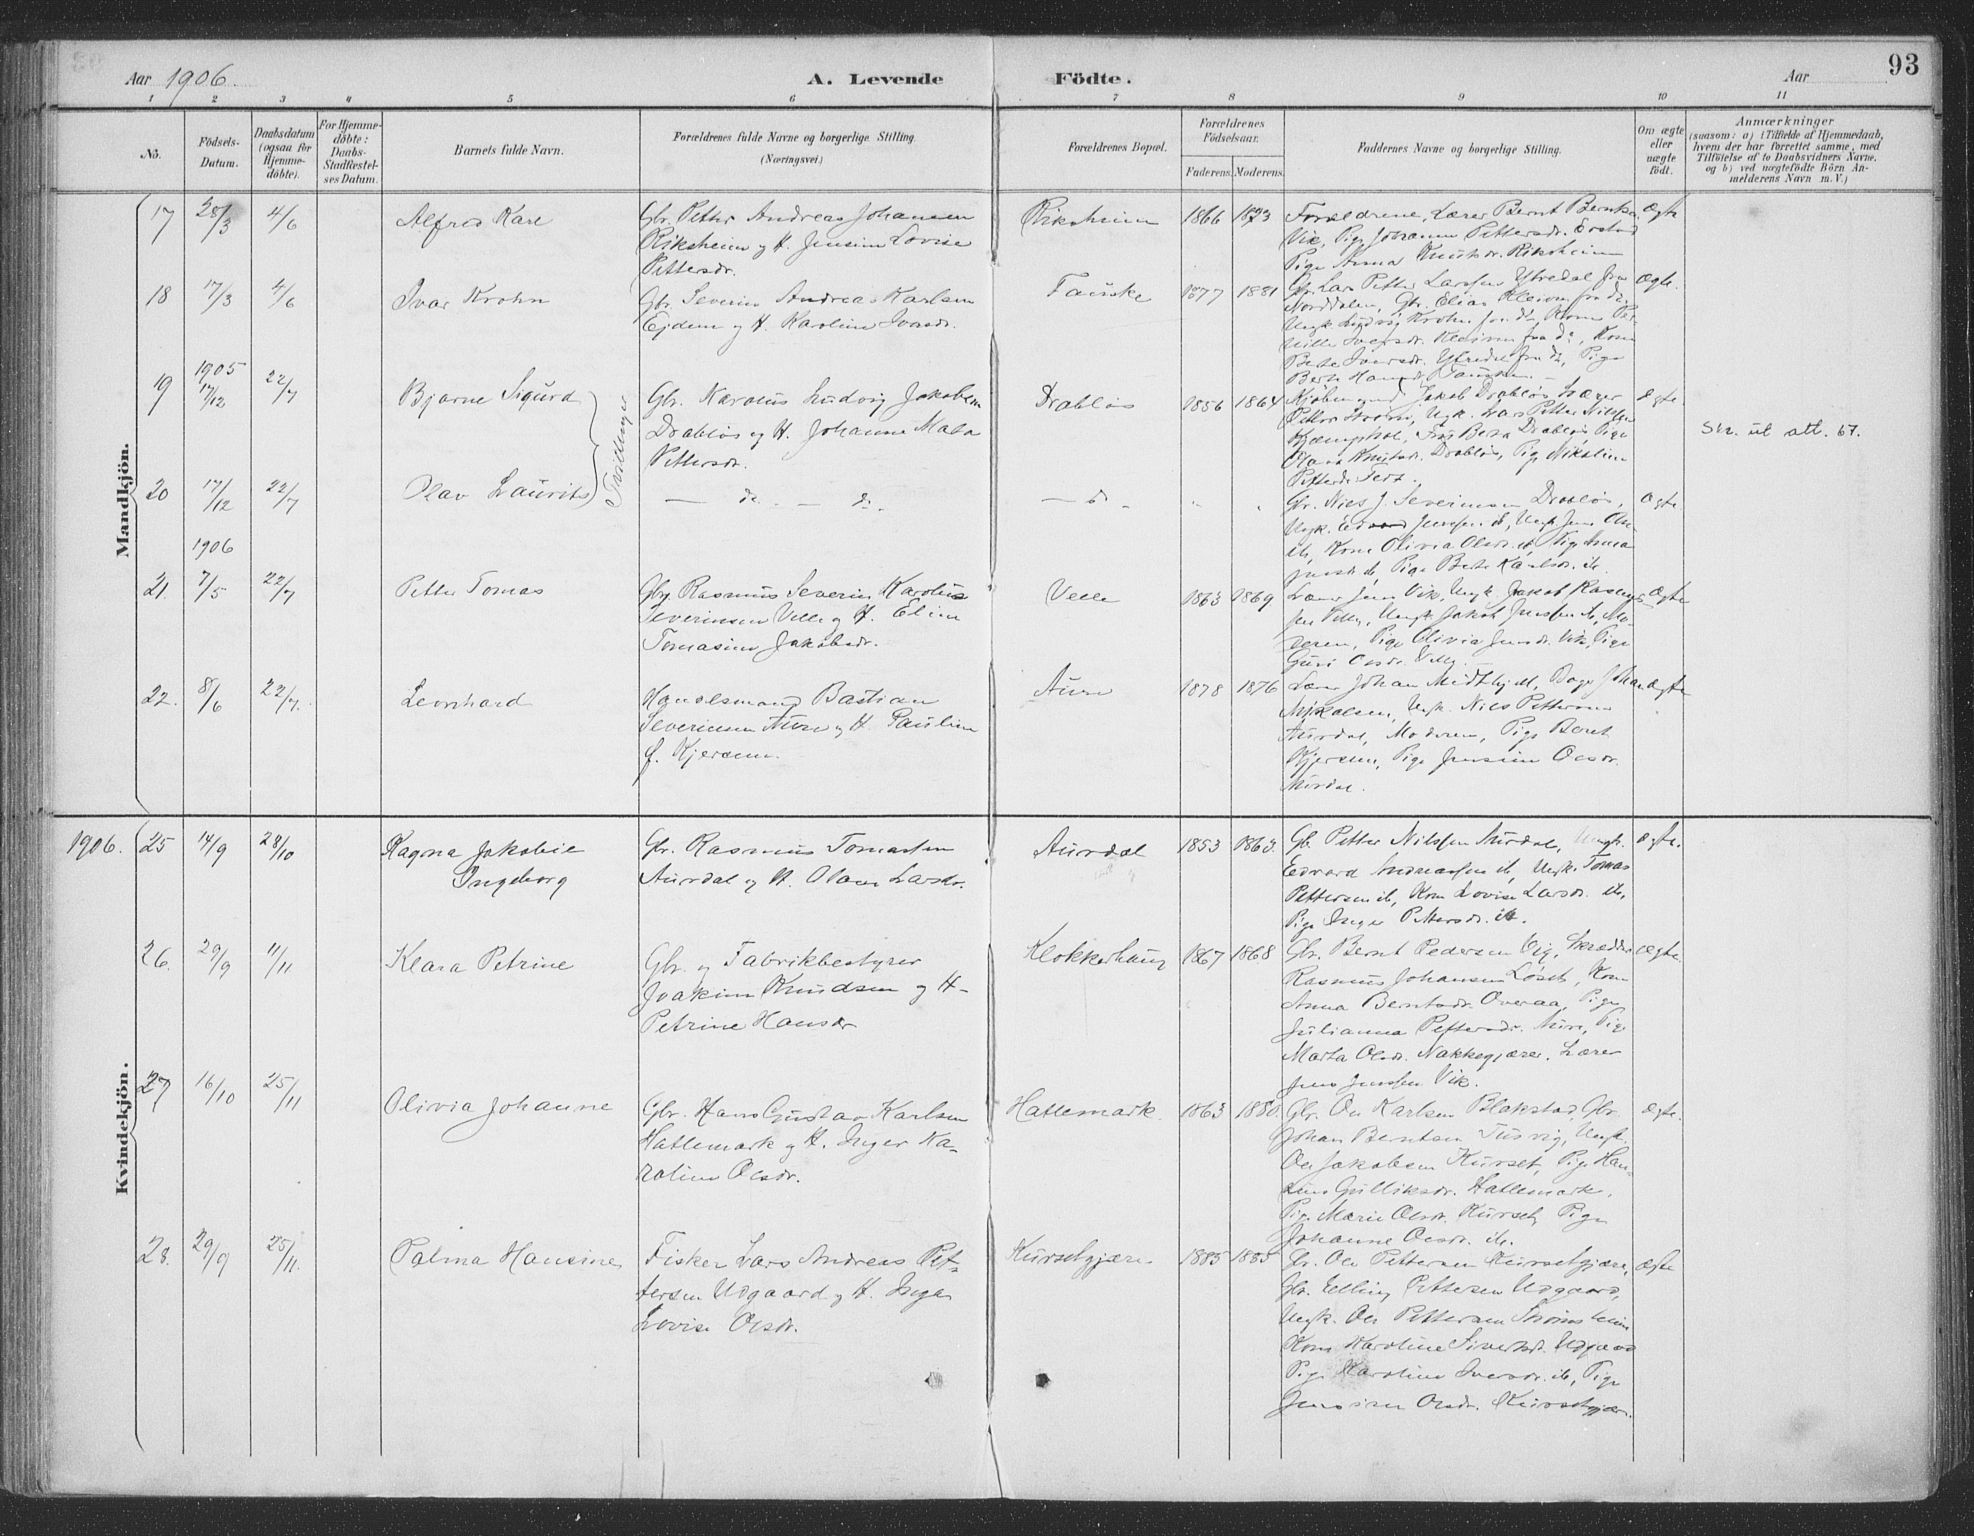 Aar 1906.
A. Levende Födte.
Aar
93
1 2 3 4 5 6 7 8 9 10 11
No.
Födsels-Datum.
Daabsdatum (ogsaa for Hjemme-döbte).
For Hjemme-döbte: Daabs-Stadfæstelses Datum.
Barnets fulde Navn.
Forældrenes fulde Navne og borgerlige Stilling.
(Næringsvei.)
Forældrenes Bopæl.
Forældrenes Födselsaar.
Faderens. Moderens.
Faddernes Navne og borgerlige Stilling.
Om ægte eller uægte födt.
Anmærkninger
(saasom: a) i Tilfælde af Hjemmedaab,
hvem der har forrettet samme, med
Tilföielse af to Daabsvidners Navne,
og b) ved uægtefödte Börn An-
melderens Navn m. V.)
Mandkjön.
17 28/3 4/6 Alfred Kare
Gbr. Petter Andreas Johansen
Riksheim og H. Jensine Lovise
Pettersdr.
Riksheim 1866 1873
Forældrene, Lærer Bernt Berntsen
Vik, Pige Johanne Pettersdr. Erstad
Pige Anna Knutsdr. Riksheim
Ægte
18 17/3 4/6 Ivar Krohn
Gbr. Severin Andreas Karlsen
Ejdem og H. Karoline Iversdr.
Fauske 1877 1881
Gbr. Lars Petter Larsen Ytredal fra
Norddalen, Gbr. Elias Kleiven fra do,
Ungk. Ludvig Krohn fra do, Kone Per-
nille Iversdr. Kleiven fra do, Kone
Berte Iversdr. Ytredal fra do, Pige
Berte Hansdr. Fausken.
Ægte.
1905
19 17/12 22/7 Bjarne Sigurd
Tvillinge
Gbr. Karolus Ludvig Jakobsen
Drabløs og H. Johanne Mala
Pettersdr.
Drabløs 1856 1864
Kjøbmand Jakob Drabløs, Lærer
Petter Strømme, Ungk. Lars Petter Nilssen
Kjemphol, Frøk Berta Drabløs, Pige
Hana Knutsdr. Drabløs, Pige Nikoline
Pettersdr.
Ægte.
Skr. ut att. 67.
20 17/12 22/7 Olav Laurits
— do — do.
— do.
Gbr. Nils J. Severinsen Drabløs,
Ungk. Edvard Jenssen ib, Ungk Jens
ib, Kone Olivia Olsdr. ib, Pige Anna
ib, Pige Berte Karlsdr. ib.
Ægte
1906
21. 7/5 22/7 Petter Tomas
Gbr. Rasmus Severin Karolus
Severinsen Velle og H. Eline
Tomasine Jakobsdr.
Velle 1863 1869
Lærer Jens Vik, Ungk. Jakob Rasmus-
sen Velle, Ungk Jakob Jenssen ib, Mo-
deren, Pige Olivia Jensdr. Vik, Pige
Guri Olsdr. Velle
Ægte
22. 8/6 22/7. Leonhard
Handelsmand Bastian
Severinsen Aure og H. Pauline
f. Kjersem.
Aure 1878 1876
Lærer Johan Midthjell, Bager Johan
Mikalsen, Ungk. Nils Pettersen
Aurdal, Moderen, Pige Beret
Kjersem, Pige Jensine Olsdr.
Aurdal.
Ægte
Kvindekjön.
1906. 25 14/9 28/10 Ragna Jakobie
Ingeborg
Gbr. Rasmus Tomassen
Aurdal og H. Olave Larsdr.
Aurdal 1853 1863.
Gb. Petter Nilssen Aurdal, Ungk.
Edvard Andreassen ib, Ungk. Tomas
Pettersen ib, Kone Lovise Larsdr. ib,
Pige Inger Pettersdr. ib.
Ægte.
26. 29/9 11/11 Klara Petrine
Gbr. og Fabrikbestyrer
Joakim Knudsen og H.
Petrine Hansdr
Klokkerhaug 1867 1868
Gbr. Bernt Pedersen Vig, Skrædder
Rasmus Johansen Løset, Kone
Anna Berntsdr. Overaa, Pige
Julianna Pettersdr. Aure, Pige
Marta Olsdr. Nakkegjære, Lærer
Jens Jenssen Vik.
Ægte.
27 16/10 25/11 Olivia Johanne
Gbr. Hans Gustav Karlsen
Hatlemark og H. Inger Ka-
roline Olsdr.
Hatlemark. 1863 1880.
Gbr. Ole Karlsen Blakstad, Gbr.
Johan Berntsen Tusvig, Ungk.
Ole Jakobsen Kurset, Pige Han-
sine Gulliksdr. Hatlemark,
Pige Marie Olsdr. Kurset, Pige
Johanne Olsdr. ib.
Ægte.
28. 29/9 25/11. Palma Hansine
Fisker Lars Andreas Pet-
tersen Udgaard og H. Inger
Lovise Olsdr.
Kursetgjære 1885 1885
Gbr. Ole Pettersen Kursetgjære,
Gbr. Elling Pettersen Udgaard,
Ungk. Ole Pettersen Strømsheim
Kone Karoline Sivertsdr. Udgaard
Pige Karoline Iversdr. ib, Pige
Jensine Olsdr. Kursetgjære.
Ægte